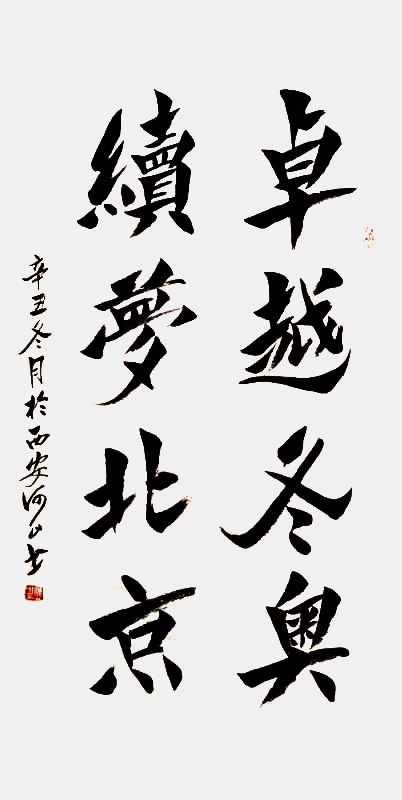 卓越冬奥
續夢北京
辛丑冬月於西安河山书